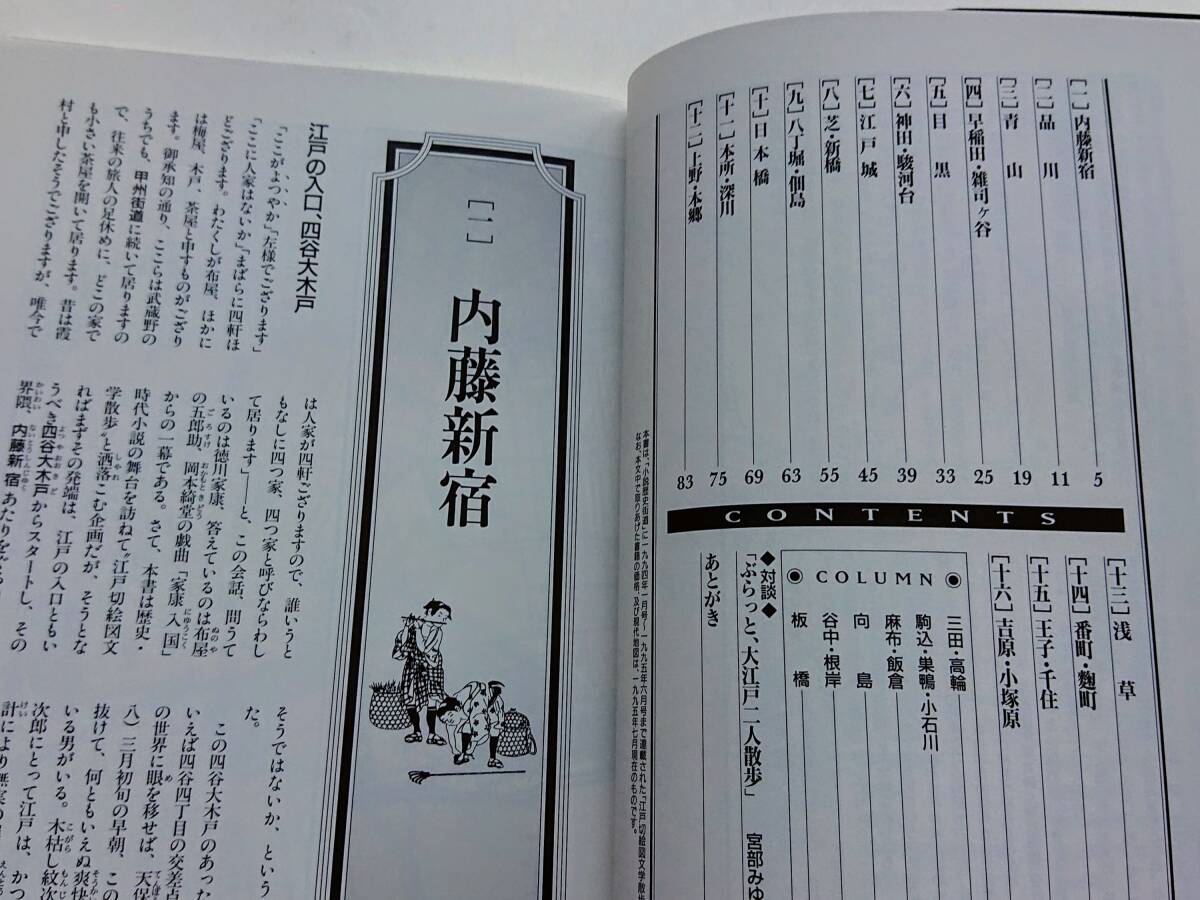 [一]内藤新宿 5
[二]品川 11
[三]青山 19
[四]早稲田・雑司ヶ谷 25
[五]目黒 33
[六]神田・駿河台 39
[七]江戸城 45
[八]芝・新橋 55
[九]八丁堀・佃島 63
[十]日本橋 69
[十一]本所・深川 75
[十二]上野・本郷 83
CONTENTS
[十三]浅草
[十四]番町・麴町
[十五]王子・千住
[十六]吉原・小塚原
◉COLUMN◉
三田・高輪
駒込・巣鴨・小石川
麻布・飯倉
向島
谷中・根岸
板橋
◆対談◆
「ぶらっと、大江戸二人散歩」 宮部みゆ
あとがき
本書は、「小説歴史街道」に一九九四年一月号〜一九九五年六月号まで連載された「江戸切絵図文学散歩
なお、本文中で取りあげた書籍の価格、及び現代地図は、一九九五年七月現在のものです。
[一] 内藤新宿
江戸の入口、四谷大木戸
「ここがよつやか」「左様でござります」
「ここに人家はないか」「まばらに四軒ほ
どござります。わたくしが布屋、ほかに
は梅屋、木戸、茶屋と申すものがござり
ます。御承知の通り、ここらは武蔵野の
うちでも、甲州街道に続いて居りますの
で、往来の旅人の足休めに、どこの家で
も小さい茶屋を開いて居ります。昔は霞
村と申したそうでござりますが、唯今で
は人家が四軒ござりますので、誰いうと
もなしに四つ家、四つ家と呼びならわし
て居ります」――と、この会話、問うて
いるのは徳川家康、答えているのは布屋
の五郎助、岡本綺堂の戯曲「家康入国」
からの一幕である。さて、本書は歴史・
時代小説の舞台を訪ねて〝江戸切絵図文
学散歩〟と洒落こむ企画だが、そうとな
ればまずその発端は、江戸の入口ともい
うべき四谷大木戸からスタートし、その
界隈、内藤新宿あたりを
そうではないか、という
た。
この四谷大木戸のあった
いえば四谷四丁目の交差点
の世界に眼を移せば、天保
八）三月初旬の早朝、この
抜けて、何ともいえぬ爽快
いる男がいる。木枯し紋次
次郎にとって江戸は、かつ
計により無実の